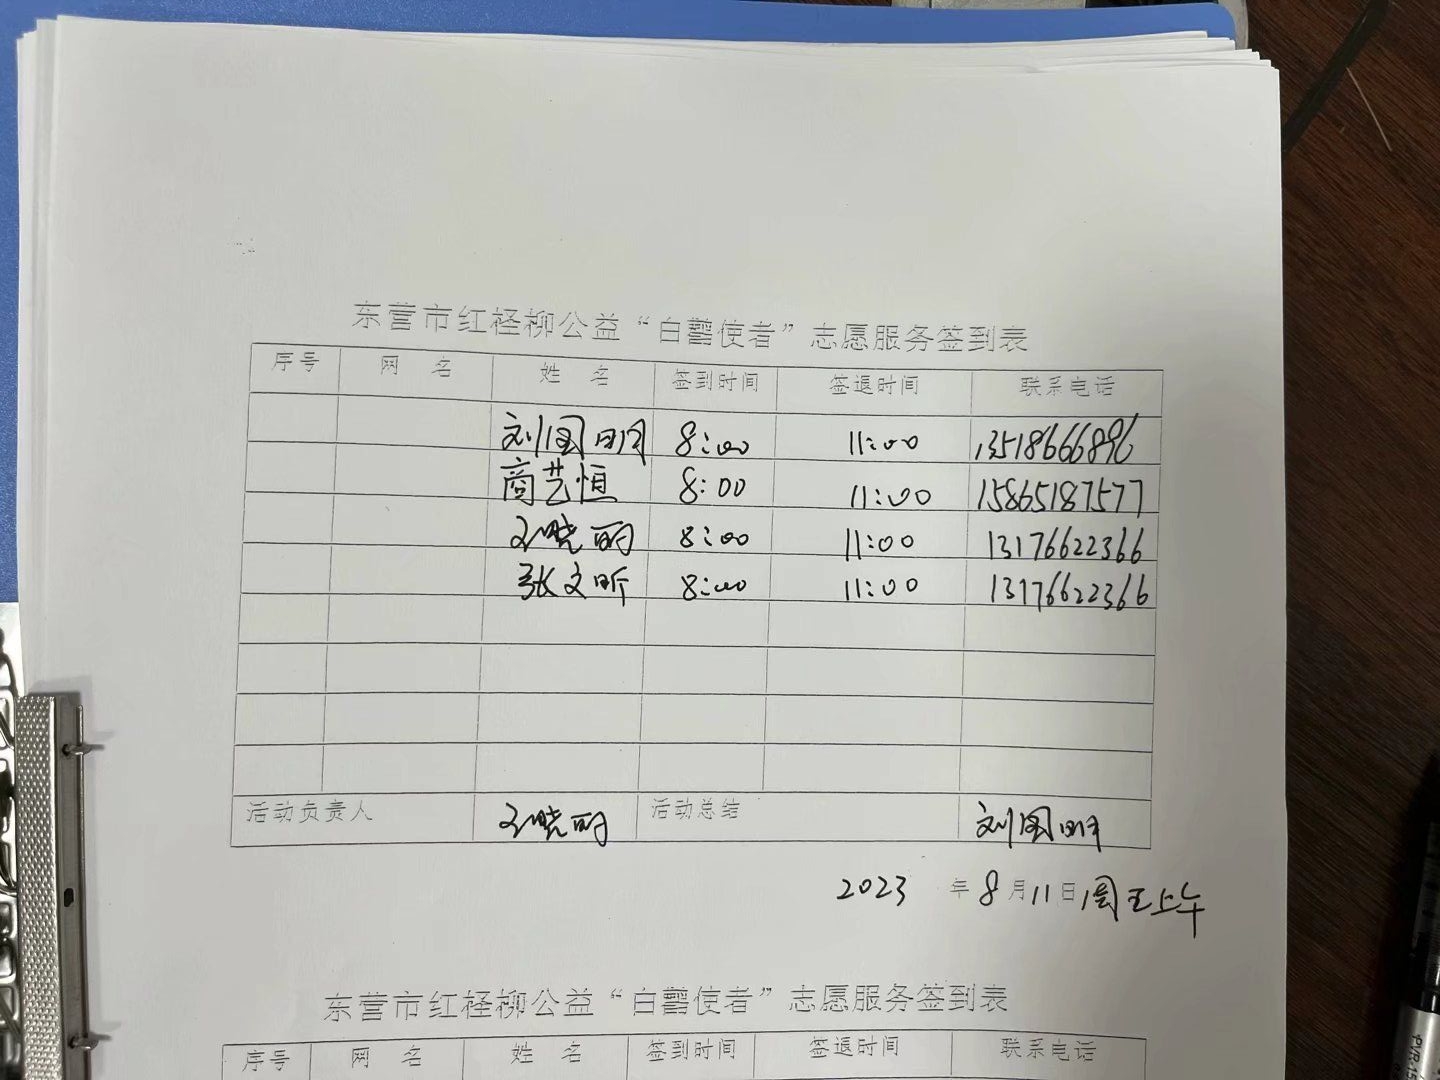 东营市红柽柳公益“白鹳使者”志愿服务签到表
序号 网 名 姓 名 签到时间 签退时间 联系电话
刘国明 8:00 11:00 13518666896
商艺恒 8:00 11:00 15865187577
王晓丽 8:00 11:00 13176622366
张文昕 8:00 11:00 13176622366
活动负责人 王晓丽 活动总结 刘国明
2023 年 8 月 11 日 周五上午
东营市红柽柳公益“白鹳使者”志愿服务签到表
序号 网 名 姓 名 签到时间 签退时间 联系电话